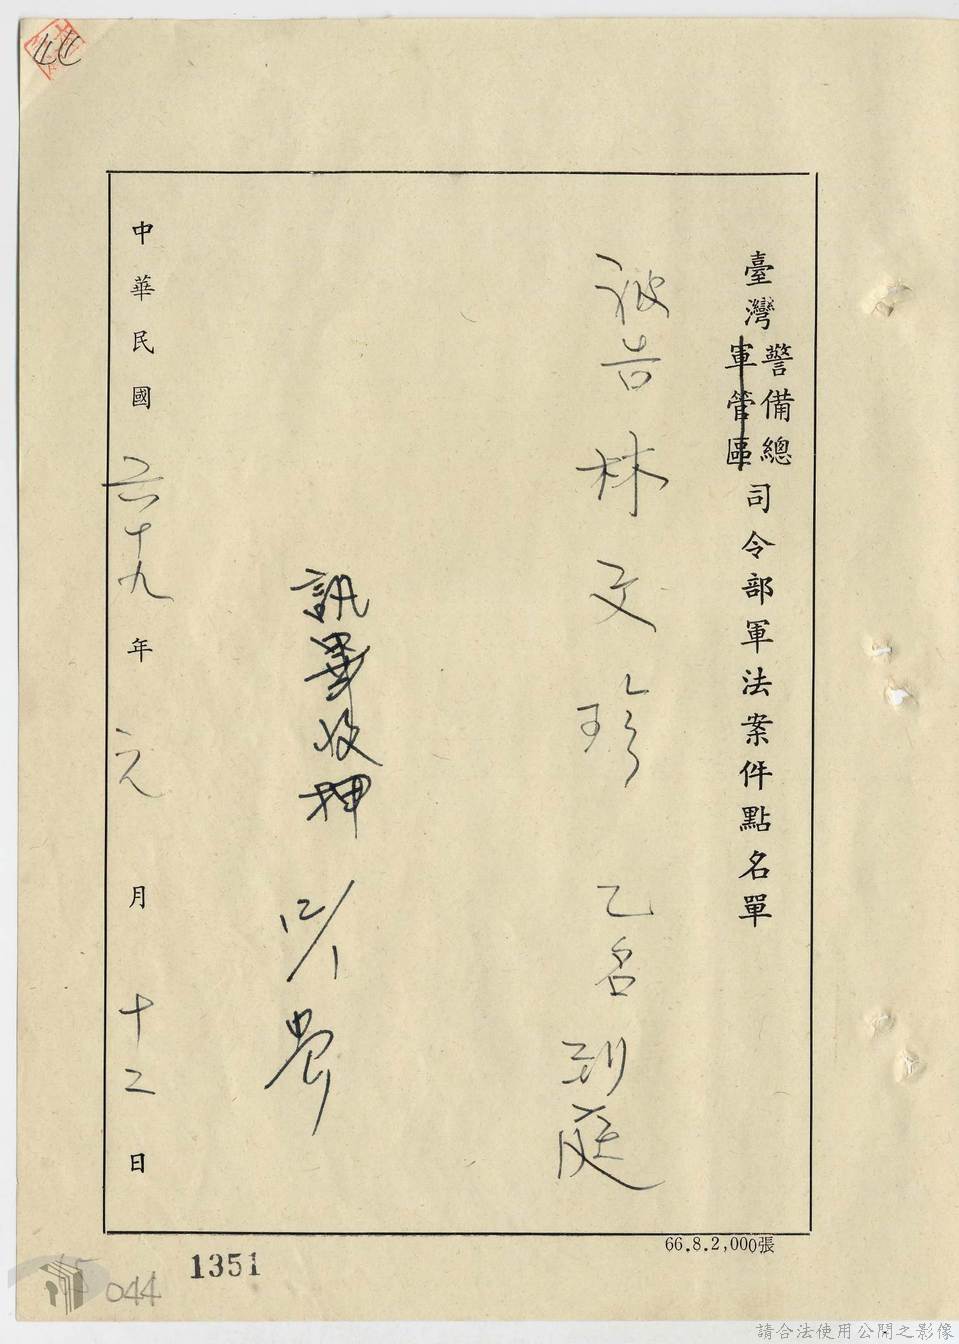 臺灣警備總軍管區司令部軍法案件點名單
被告林文珍乙名到庭
訊畢收押
12/1
中華民國六十九年元月十二日
66.8.2,000張
1351
044
44
請合法使用公開之影像